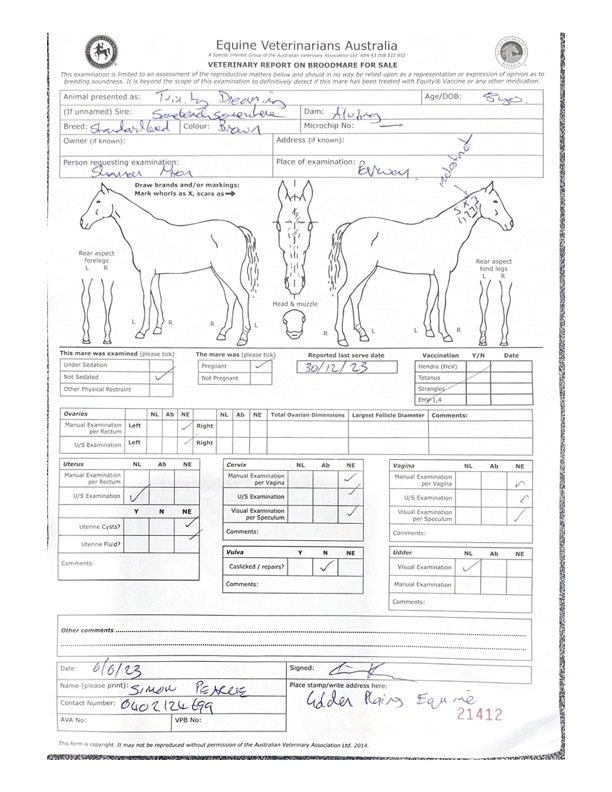 Equine Veterinarians Australia
A Special Interest Group of the Australian Veterinary Association Ltd. ABN 63 008 522 852
VETERINARY REPORT ON BROODMARE FOR SALE
This examination is limited to an assessment of the reproductive matters below and should in no way be relied upon as a representation or expression of opinion as to
breeding soundness. It is beyond the scope of this examination to definitively detect if this mare has been treated with Equity® Vaccine or any other medication.
Animal presented as: Dreaming Age/DOB:
(If unnamed) Sire: Dam:
Breed: Standardbred Colour: Brown Microchip No: —
Owner (if known): Address (if known):
Person requesting examination: Place of examination:
Draw brands and/or markings:
Mark whorls as X, scars as
Rear aspect
forelegs
L R
Rear aspect
hind legs
L R
L R
Head & muzzle
R L
This mare was examined (please tick) The mare was (please tick) Reported last serve date Vaccination Y/N Date
Under Sedation Pregnant 30/12/23 Hendra (HeV)
Not Sedated Not Pregnant Tetanus
Other Physical Restraint Strangles
EHV 1,4
Ovaries NL Ab NE NL Ab NE Total Ovarian Dimensions Largest Follicle Diameter Comments:
Manual Examination per Rectum Left Right
U/S Examination Left Right
Uterus NL Ab NE Cervix NL Ab NE Vagina NL Ab NE
Manual Examination per Rectum Manual Examination per Vagina Manual Examination per Vagina
U/S Examination U/S Examination U/S Examination
Y N NE Visual Examination per Speculum Visual Examination per Speculum
Uterine Cysts? Comments: Comments:
Uterine Fluid?
Comments: Vulva Y N NE Udder NL Ab NE
Caslicked / repairs? Visual Examination
Comments: Manual Examination
Comments:
Other comments
Date: 6/6/23 Signed:
Name (please print): SIMON PEARCE Place stamp/write address here:
Contact Number: 0402124699 Plains Equine
21412
AVA No: VPB No:
This form is copyright. It may not be reproduced without permission of the Australian Veterinary Association Ltd. 2014.